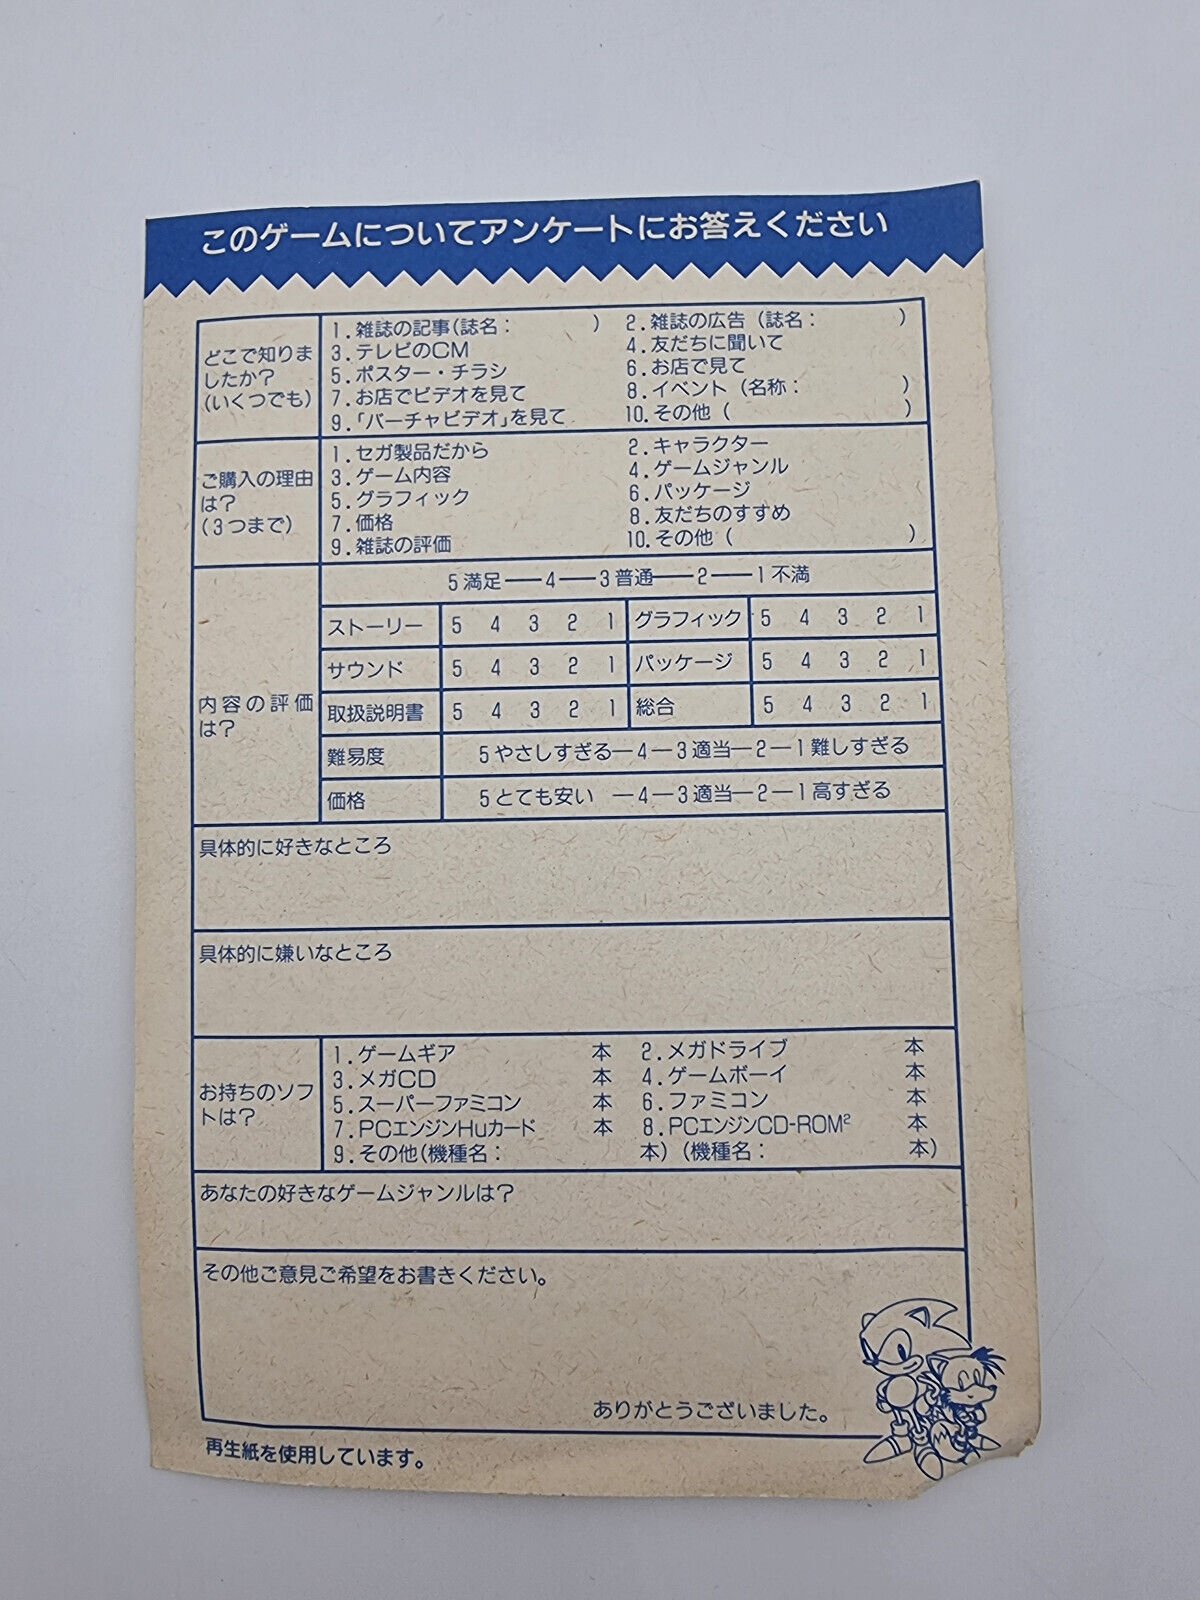 このゲームについてアンケートにお答えください
どこで知りま
したか?
(いくつでも)
1.雑誌の記事(誌名:　　　) 2.雑誌の広告(誌名:　　　)
3.テレビのCM 4.友だちに聞いて
5.ポスター・チラシ 6.お店で見て
7.お店でビデオを見て 8.イベント(名称:　　　)
9.「バーチャビデオ」を見て 10.その他(　　　)
ご購入の理由
は?
(3つまで)
1.セガ製品だから 2.キャラクター
3.ゲーム内容 4.ゲームジャンル
5.グラフィック 6.パッケージ
7.価格 8.友だちのすすめ
9.雑誌の評価 10.その他(　　　)
内容の評価
は?
5満足──4──3普通──2──1不満
ストーリー 5 4 3 2 1 グラフィック 5 4 3 2 1
サウンド 5 4 3 2 1 パッケージ 5 4 3 2 1
取扱説明書 5 4 3 2 1 総合 5 4 3 2 1
難易度 5やさしすぎる─4─3適当─2─1難しすぎる
価格 5とても安い ─4─3適当─2─1高すぎる
具体的に好きなところ
具体的に嫌いなところ
お持ちのソフ
トは?
1.ゲームギア 本 2.メガドライブ 本
3.メガCD 本 4.ゲームボーイ 本
5.スーパーファミコン 本 6.ファミコン 本
7.PCエンジンHuカード 本 8.PCエンジンCD-ROM² 本
9.その他(機種名:　　　本)(機種名:　　　本)
あなたの好きなゲームジャンルは?
その他ご意見ご希望をお書きください。
ありがとうございました。
再生紙を使用しています。